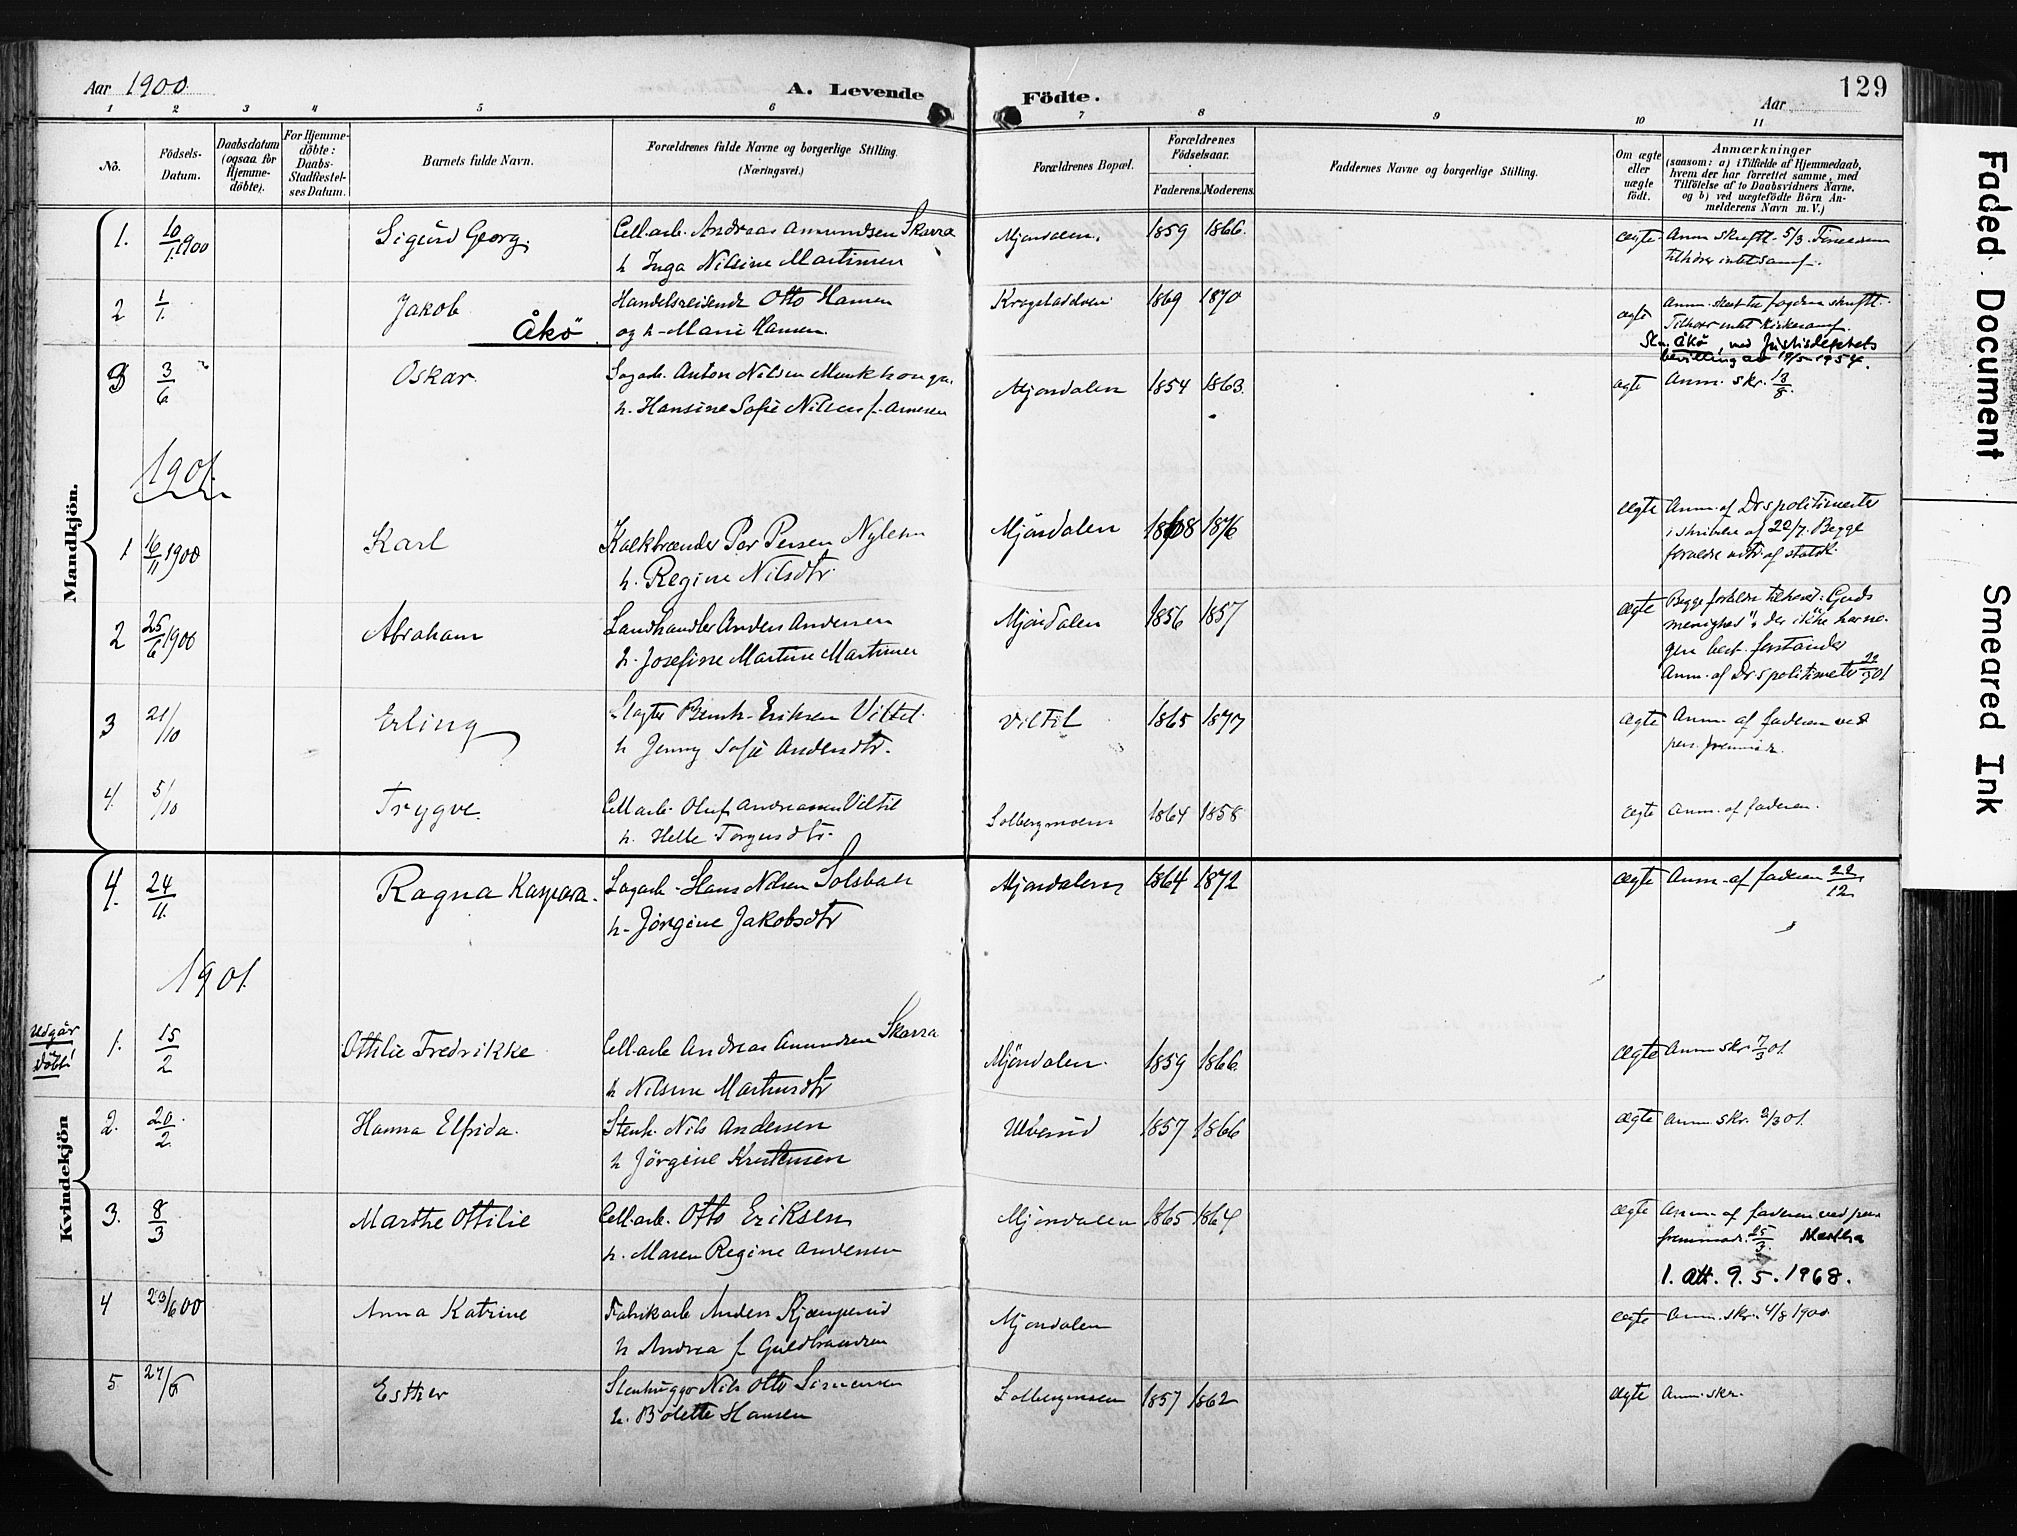 Aar 1900.
A. Levende Födte.
Aar
129
1 2 3 4 5 6 7 8 9 10 11
No.
Födsels-Datum.
Daabsdatum (ogsaa for Hjemme-döbte).
For Hjemme-döbte: Daabs-Stadfæstel-ses Datum.
Barnets fulde Navn.
Forældrenes fulde Navne og borgerlige Stilling. (Næringsvei.)
Forældrenes Bopæl.
Forældrenes Födselsaar.
Faderens. Moderens.
Faddernes Navne og borgerlige Stilling.
Om ægte eller uægte födt.
Anmærkninger
(saasom: a) i Tilfælde af Hjemmedaab,
hvem der har forrettet samme, med
Tilföielse af to Daabsvidners Navne,
og b) ved uægtefödte Börn An-
melderens Navn m. V.)
Mandkjön.
1. 10/1 1900 Sigurd Georg. Cell.arb. Andreas Amundsen Skarra Mjøndalen. 1859 1866. ægte Anm. skriftl. 5/3.
h. Inga Nilsine Martinsen tilhører intet samf.
2 1/1. Jakob Handelsreisende Otto Hansen 1869 1870 ægte
Åkö. og h. Marie Hansen. Tilhører intet kirkesamf.
Åkö, ved Justisdeptets
bevilling av 1954.
3 3/6 Oskar. Anton Nilsen Mjøndalen 1854 1863. ægte Anm. skr. 13/8.
h. Hansine Sofie Nilsen f. Arnesen
1901.
1. 16/11 1900 Karl Kalkbrænder Per Persen Mjøndalen 1868 1876 ægte Anm. af Drs politimester
h. Regine Nilsdtr. i skrivelse af 20/7. Begge
forældre udtr. af statsk.
2 25/6 1900 Abraham Landhandler Anders Andersen Mjøndalen 1856 1857 ægte Begge forældre tilhører "Guds
h. Josefine Martine Martinsen menighed", der ikke har no-
gen best. forstander
Anm. af Drs politimester
3 21/10 Erling Slagter Bernh. Eriksen Viltil. Viltil 1865 1877 ægte Anm. af faderen ved
h. Jenny Sofie Andersdtr.
4. 5/10 Trygve. Cell.arb. Oluf Andreassen Viltil Solbergmoen 1864 1858 ægte Anm. af faderen.
h. Helle Torgersdtr.
Kvindekjön
4. 24/11. Ragna Kaspara. Sagarb. Hans Nilsen Solsbak Mjøndalen 1864 1872 ægte Anm. af faderen 22/12
h. Jørgine Jakobsdtr
1901.
Udgår
Døbt!
1. 15/2 Ottilie Fredrikke Cell.arb Andreas Amundsen Skarra Mjøndalen. 1859 1866. ægte Anm. skr. 7/3 01.
h Nilsine Martinsdtr
2. 20/2. Hanna Elfrida. Stenh. Nils Andersen Ulverud 1857 1866 ægte Anm. skr. 01.
h Jørgine Kristensen
3. 8/3 Marthe Ottilie Cell.arb. Otto Eriksen Mjøndalen 1865 1864 ægte Anm. af faderen ved pers.
h. Maren Regine Andersen fremmøde. 25/3. Martha
1. att. 9. 5. 1968.
4 23/6 00 Anna Katrine Fabrikarb Anders Kjæmperud Mjøndalen ægte Anm. skr. 4/8 1900
h Andrea f. Guldbrandsen
5. 27/8 Esther Stenhugger Nils Otto Simensen Solbergmoen 1857 1862 ægte Anm. skr.
h. Bolette Hansen
Faded Document
Smeared Ink